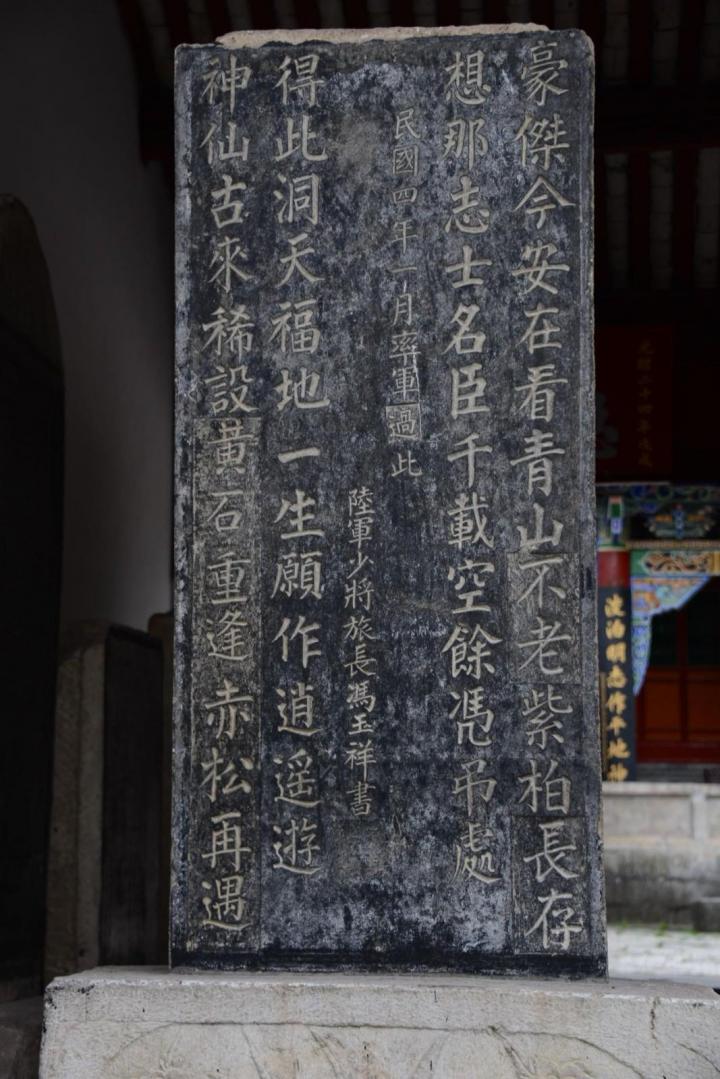 豪傑今安在看青山不老紫柏長存
想那志士名臣千載空餘憑吊處
民國四年一月率軍過此
陸軍少將旅長馮玉祥書
得此洞天福地一生願作逍遥遊
神仙古來稀設黃石重逢赤松再遇
淡泊明志作平地神